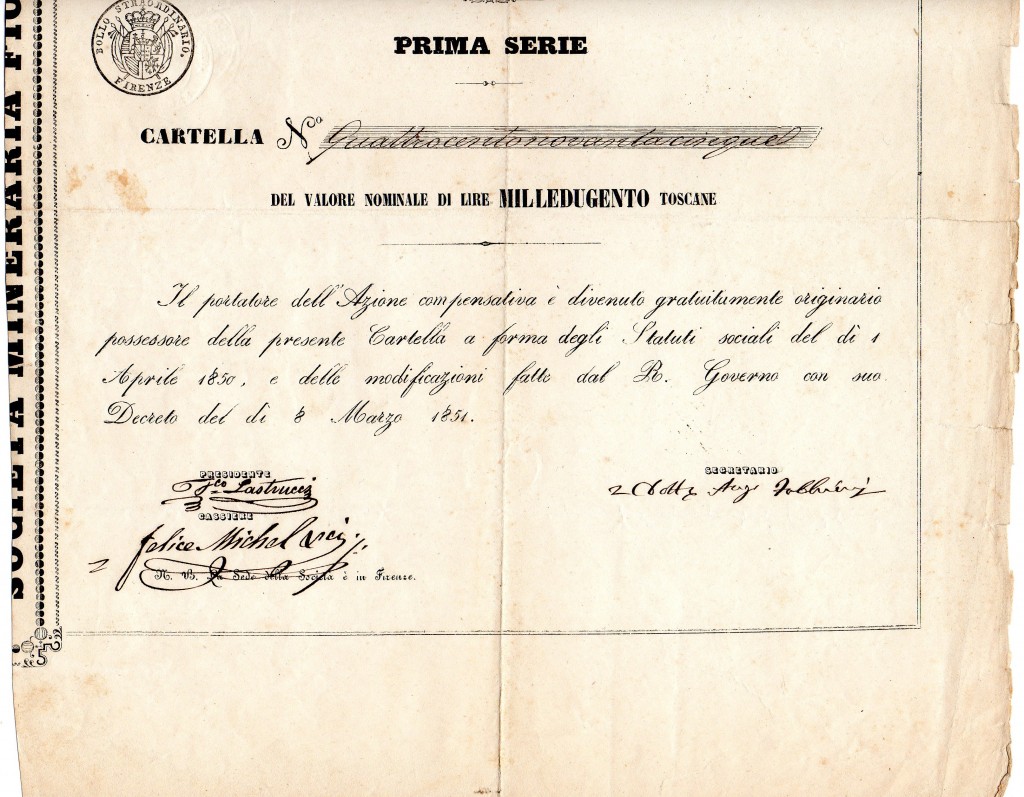 BOLLO STRAORDINARIO.
FIRENZE
SOCIETÀ MINERARIA FIO
PRIMA SERIE
CARTELLA Nº Quattrocentonovantacinque
DEL VALORE NOMINALE DI LIRE MILLEDUGENTO TOSCANE
Il portatore dell'Azione compensativa è divenuto gratuitamente originario
possessore della presente Cartella a forma degli Statuti sociali del dì 1
Aprile 1850, e delle modificazioni fatte dal R. Governo con suo
Decreto del dì 8 Marzo 1851.
PRESIDENTE
SEGRETARIO
Lastrucci
CASSIERE
Felice Michel
N. B. La Sede della Società è in Firenze.